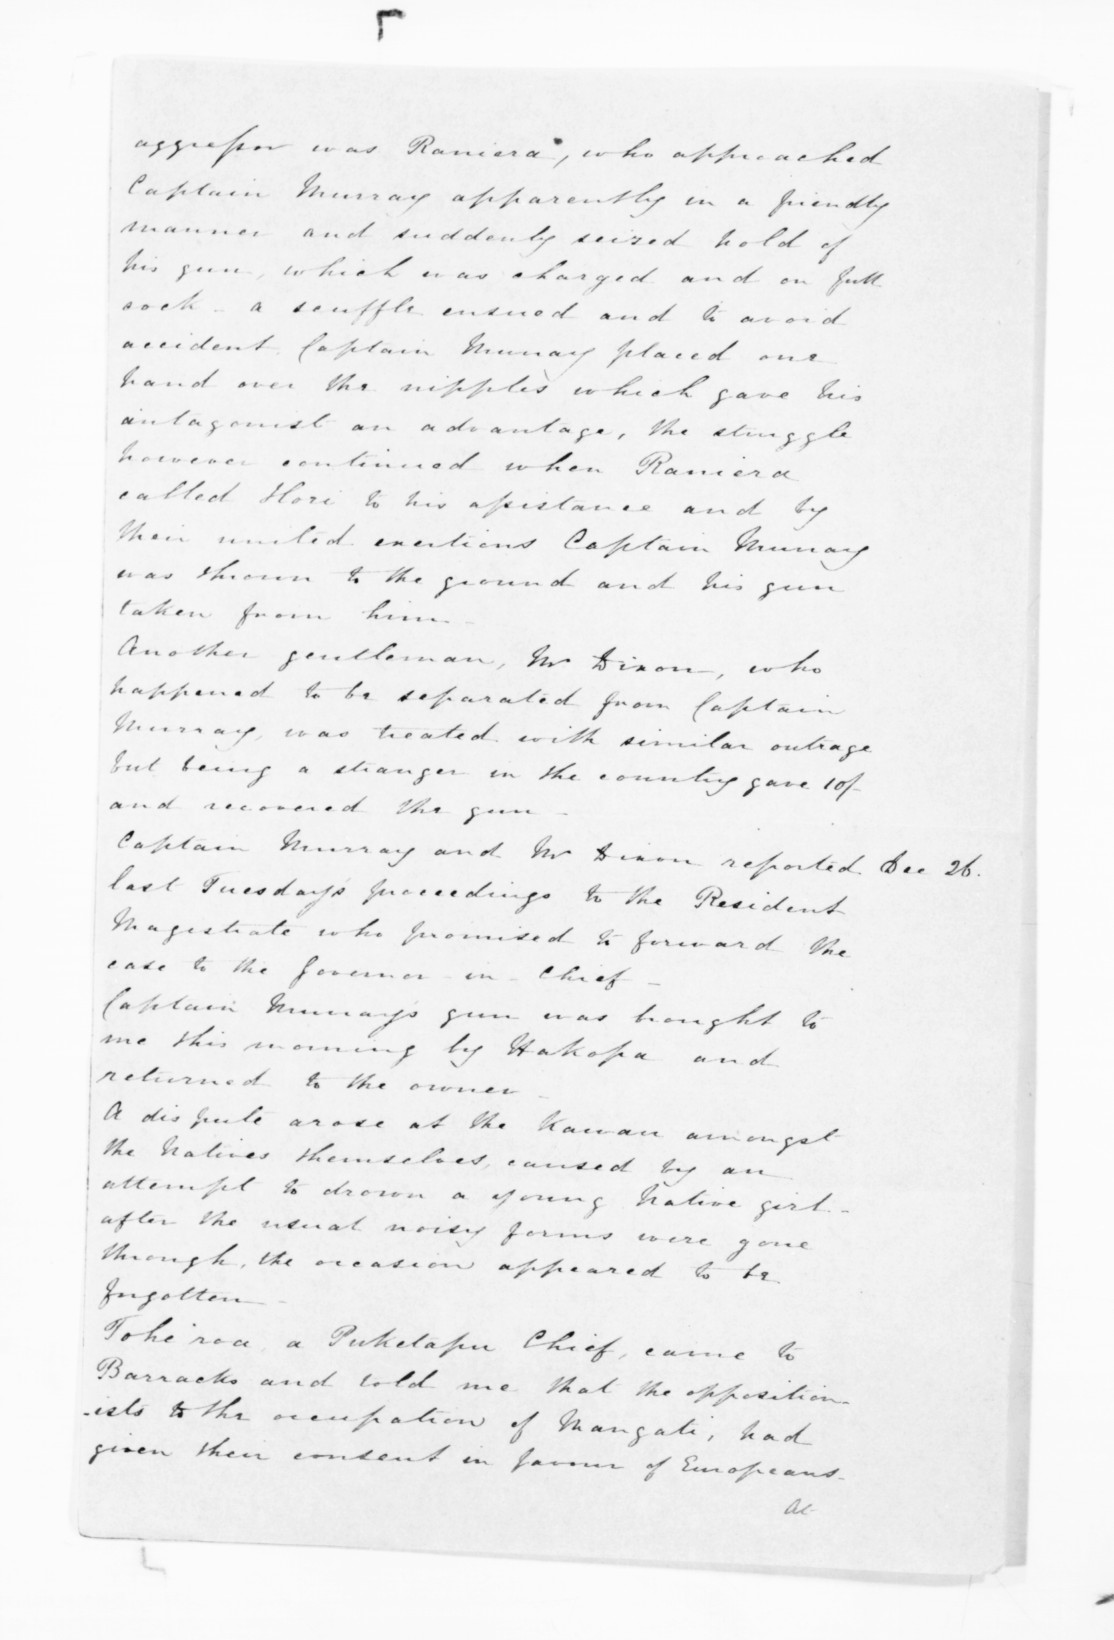 aggressor was Raniera, who approached
Captain Murray apparently in a friendly
manner and suddenly seized hold of
his gun, which was charged and on full
cock - a scuffle ensued and to avoid
accident Captain Murray placed one
hand over the nipples which gave his
antagonist an advantage, the struggle
however continued when Raniera
called Hori to his assistance and by
their united exertions Captain Murray
was thrown to the ground and his gun
taken from him -
Another gentleman, Mr Dixon, who
happened to be separated from Captain
Murray, was treated with similar outrage
but being a stranger in the country gave 10/-
and recovered the gun -
Captain Murray and Mr Dixon reported Dec 26.
last Tuesday's proceedings to the Resident
Magistrate who promised to forward the
case to the Governor-in-Chief -
Captain Murray's gun was brought to
me this morning by Hakopa and
returned to the owner -
A dispute arose at the Kawau amongst
the Natives themselves, caused by an
attempt to drown a young Native girl -
after the usual noisy forms were gone
through, the occasion appeared to be
forgotten -
Tohe'roa, a Puketapu Chief, came to
Barracks and told me that the opposition-
-ists to the occupation of Mangati, had
given their consent in favour of Europeans -
At